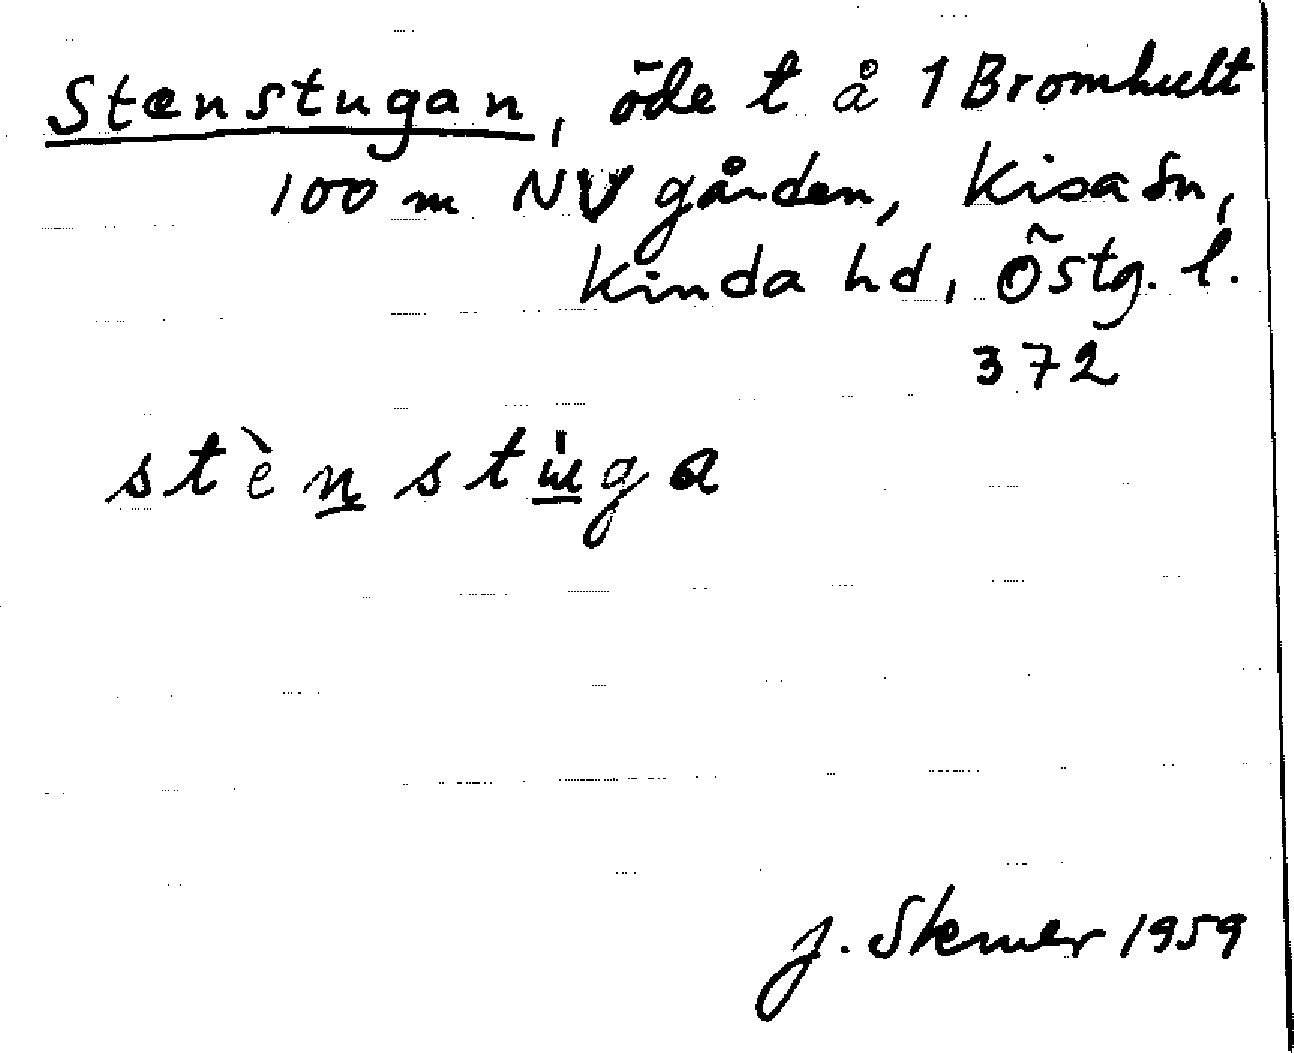 Stenstugan, öde t å 1 Bromhult
100 m NV gården, Kisa sn,
Kinda hd, Östg. l.
372
stènstu̇ga
J. Skener 1959